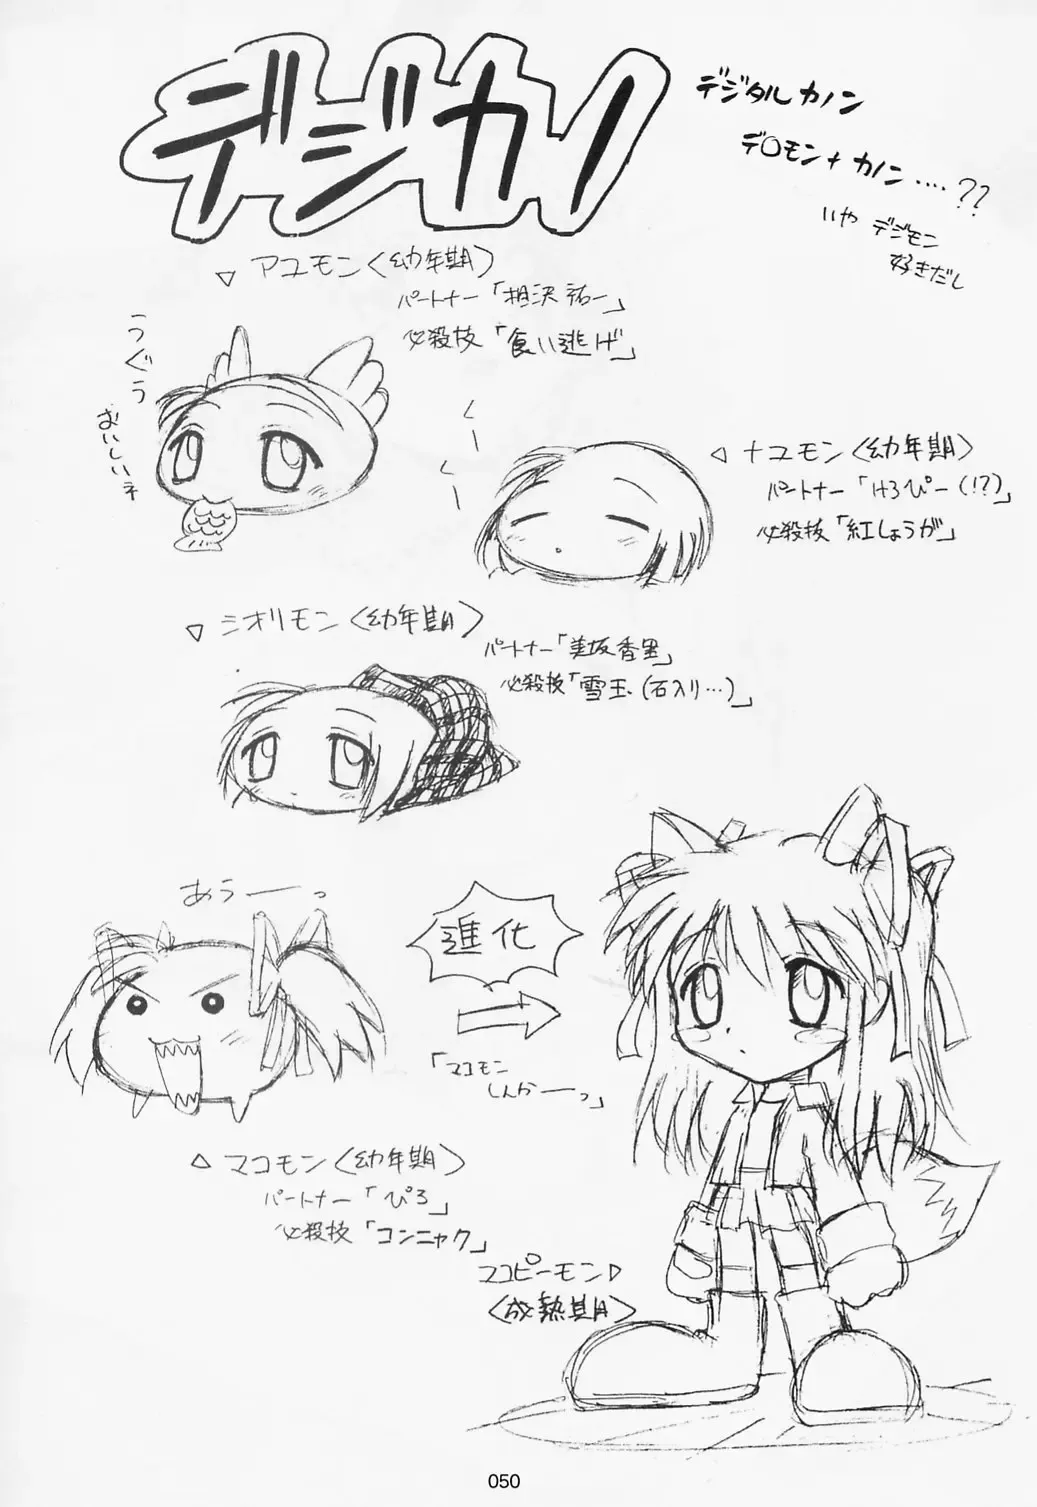 デジカノ
デジタルカノン
デ〇モン+カノン‥‥??
いや デジモン
好きだし
▽ アユモン〈幼年期〉
パートナー「相沢祐一」
必殺技「食い逃げ」
うぐぅ
おいしいネ
くー
くー
◁ ナユモン〈幼年期〉
パートナー「けろぴー(!?)」
必殺技「紅しょうが」
▽ シオリモン〈幼年期〉
パートナー「美坂香里」
必殺技「雪玉(石入り…)」
あうーっ
進化
「マコモン
しんかーっ」
△ マコモン〈幼年期〉
パートナー「ぴろ」
必殺技「コンニャク」
マコピーモン▷
〈成熟期〉
050